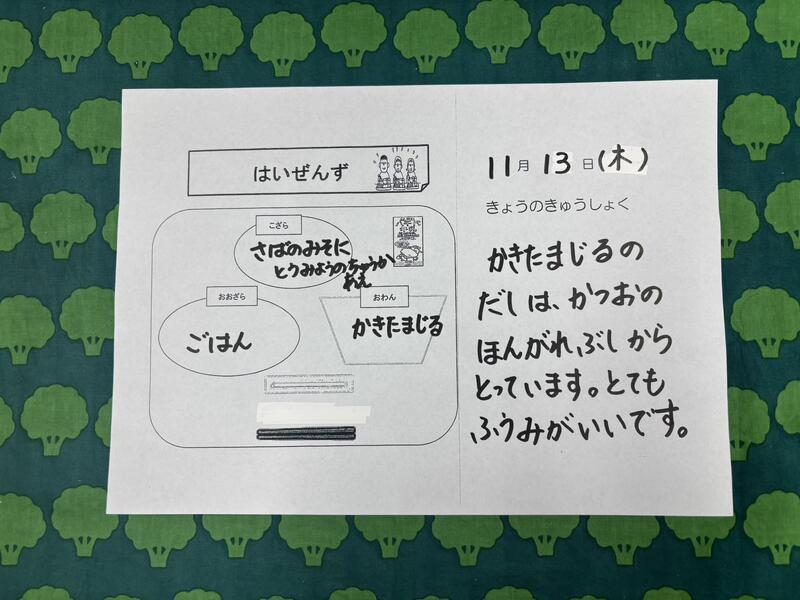 はいぜんず
こざら
さばのみそに
とうみょうのちゅうか
あえ
おおざら
ごはん
おわん
かきたまじる
11月13日(木)
きょうのきゅうしょく
かきたまじるの
だしは、かつおの
ほんがれぶしから
とっています。とても
ふうみがいいです。